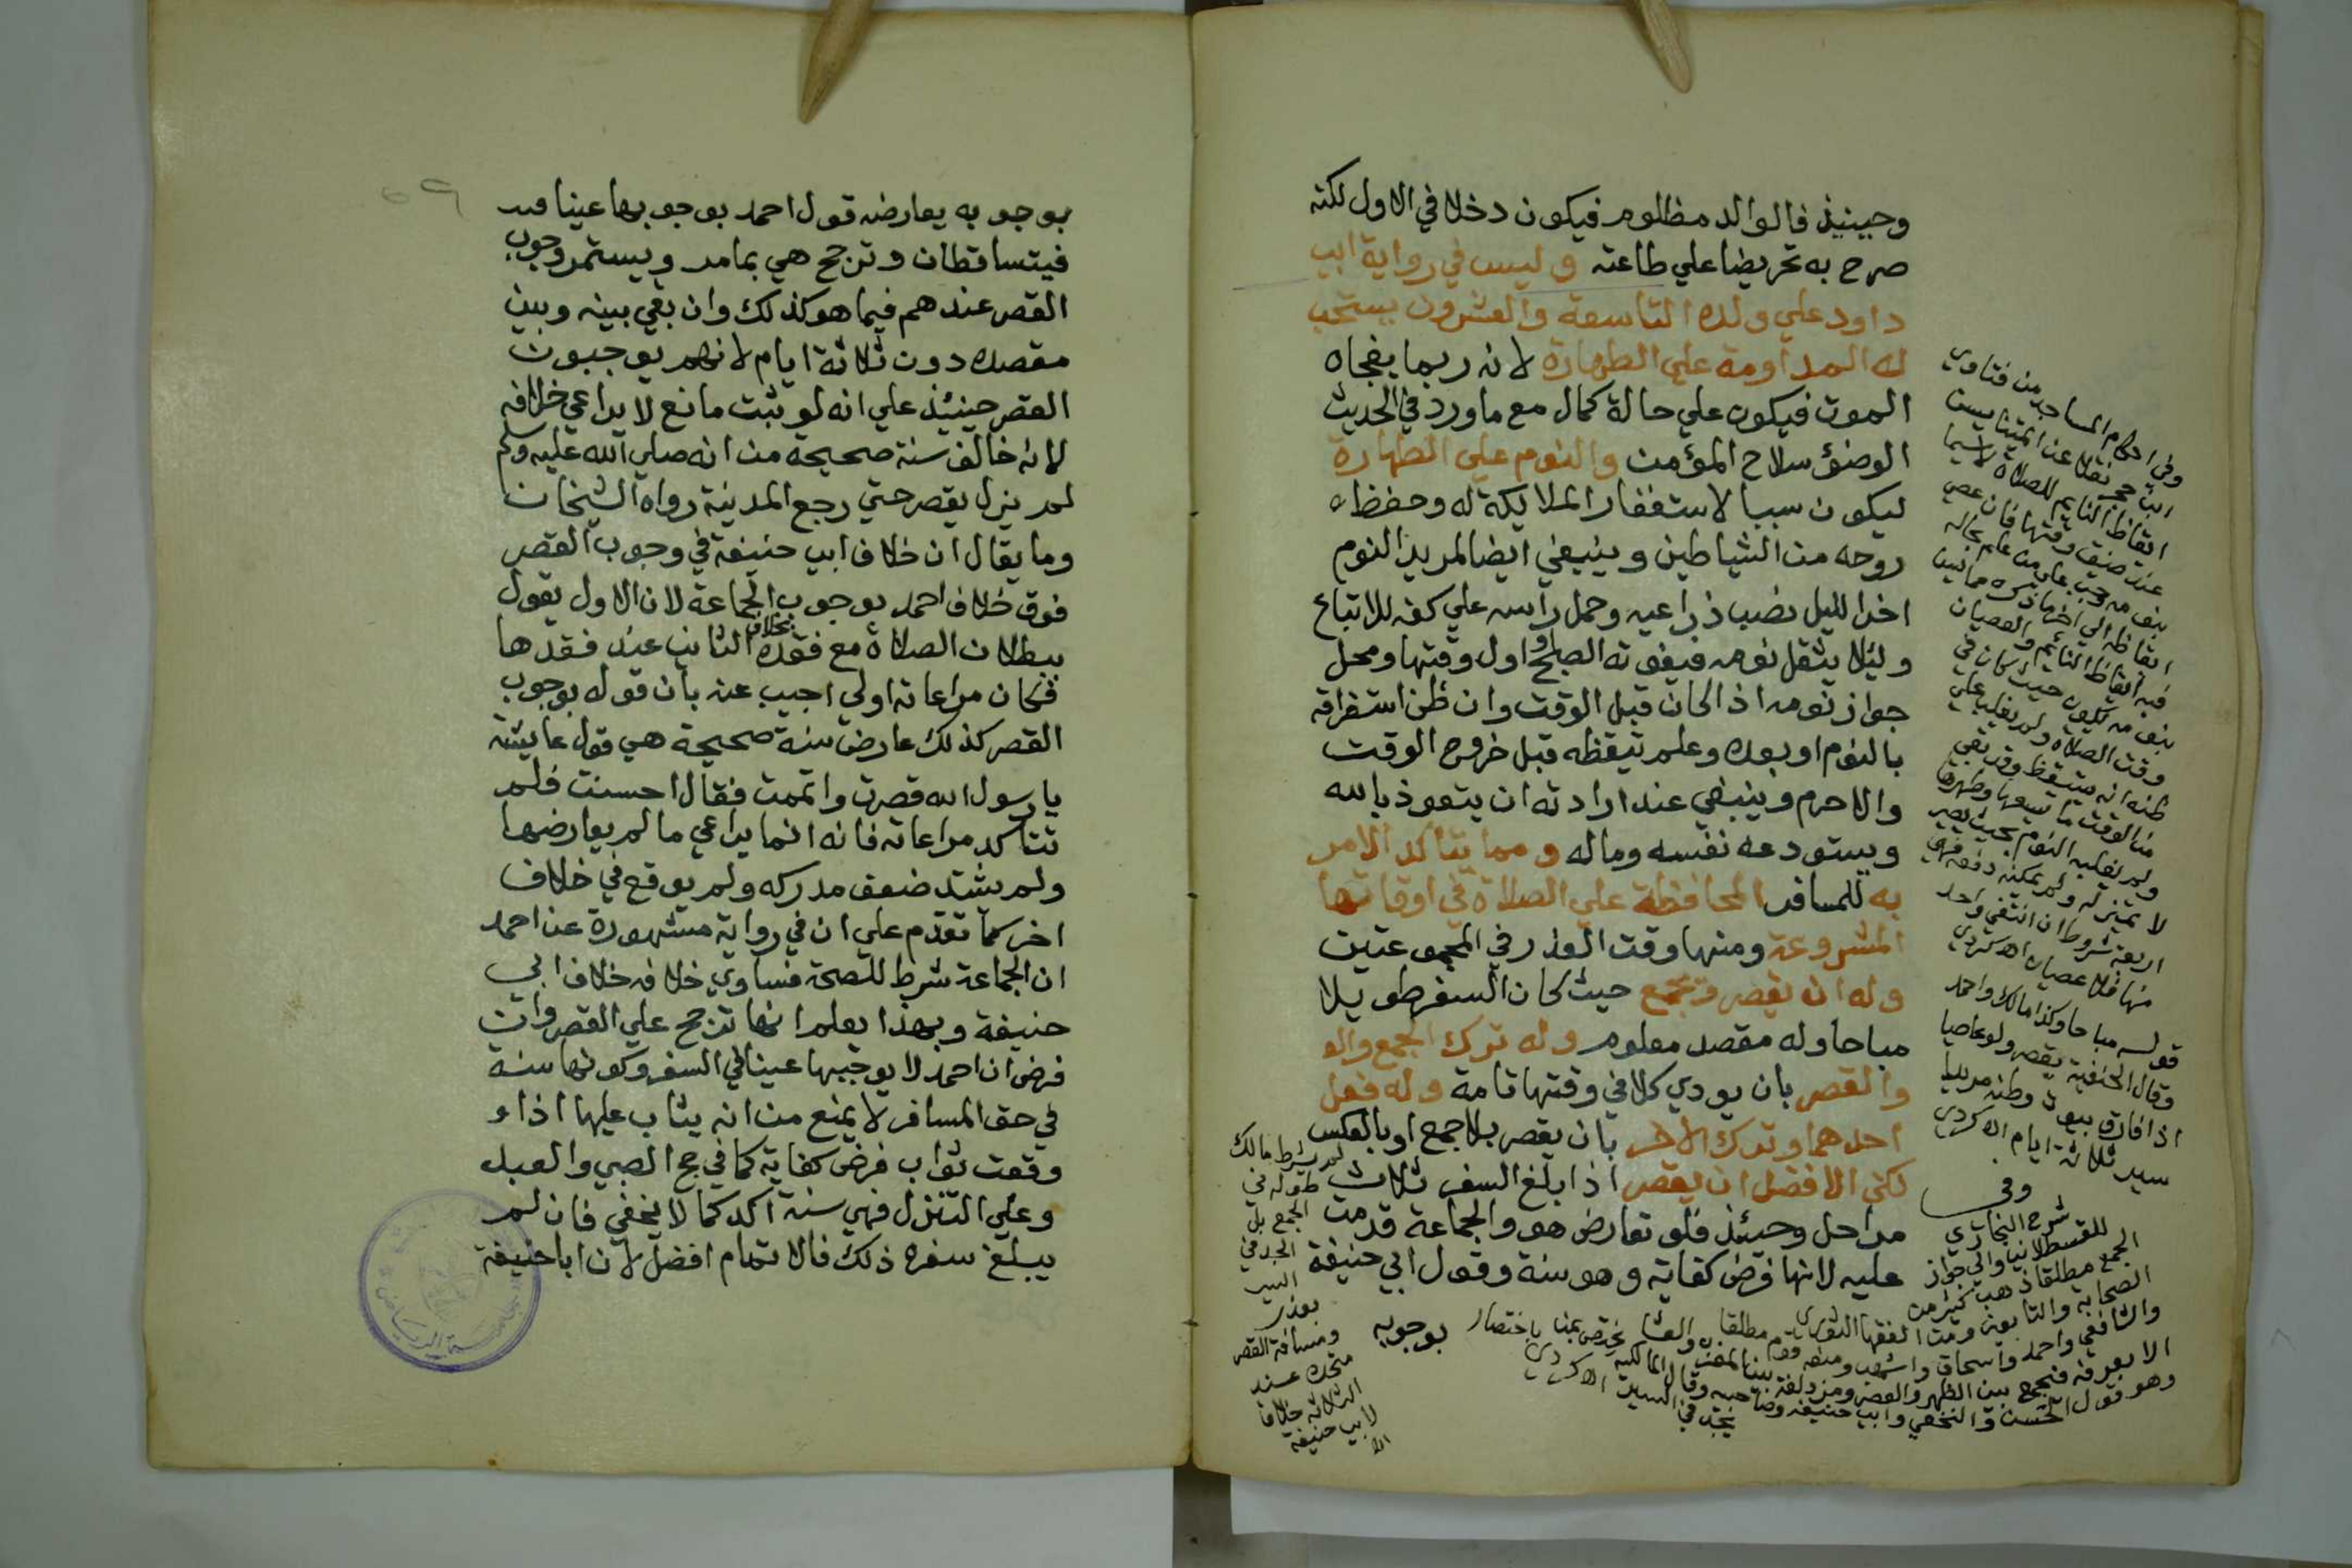 وحينيذ فالوالد مظلوم فيكون دخلا في الاول لكنه
صرح به تحريضا علي طاعته وليس في رواية ابي
داود علي ولده التاسعة والعشرون يستحب
له المداومة علي الطهارة لانه ربما يفجاه
الموت فيكون علي حالة كمال مع ما ورد في الحديث
الوضوء سلاح المؤمن والنوم علي الطهارة
ليكون سببا لاستغفار الملايكة له وحفظه
روحه من الشياطين وينبغي ايضا لمريد النوم
اخر الليل نصب ذراعيه وحمل راسه علي كفه للاتباع
وليلا يثقل نومه فيفوته الصبح او اول وقتها ومحل
جواز نومه اذا كان قبل الوقت وان ظن استغراقه
بالنوم او بعده وعلم تيقظه قبل خروج الوقت
والا حرم وينبغي عند ارادته ان يتعوذ بالله
ويستودعه نفسه وماله ومما يتاكد الامر
به للمسافر المحافظة علي الصلاة في اوقاتها
المشروعة ومنها وقت العذر في المجموعتين
وله ان يقصر ويجمع حيث كان السفر طويلا
مباحا وله مقصد معلوم وله ترك الجمع والو
والقصر بان يودي كلا في وقتها تامة وله فعل
احدهما وترك الاخر بان يقصر بلا جمع او بالعكس
لكن الافضل ان يقصر اذا بلغ السفر ثلاث
مراحل وحينئذ فلو تعارض هو والجماعة قدمت
عليه لانها فرض كفاية وهو سنة وقول ابي حنيفة
بوجوبه
وفي احكام المساجد من فتاوي
ابن حجر نقلا عن
ايقاظ النايم للصلاة لاسيما
عند ضيق وقتها فان عصي
بنومه وجب علي من علم بحاله
ايقاظه الي اخر ما ذكره
فيه ايقاظ النائم والعصيان
بنومه يكون حيث كان في
وقت الصلاة ولم يغلب علي
ظنه انه يستيقظ وقد بقي
من الوقت ما يسعها وطهرها
ولم يغلبه النوم بحيث يصير
لا تمييز له ولم يمكنه دفعه فهي
اربعة شروط ان انتفي واحد
منها فلا عصيان اه كردي
قوله مباحا وكذا مالك واحمد
وقال الحنفية يقصر ولو عاصيا
اذا فارق بيوت وطنه مريدا
سير ثلاثة ايام اه كردي
وفي
شرح البخاري
للقسطلاني والي جواز
الجمع مطلقا ذهب كثير من
الصحابة والتابعين ومن الفقها الثوري
والشافعي واحمد واسحاق واشهب ومنعه قوم مطلقا
الا بعرفة فيجمع بين الظهر والعصر ومزدلفة بين المغرب والعشا
وهو قول الحسن والنخعي وابي حنيفة وصاحبيه وقال المالكية يختص بمن
يجد في السير باختصار اه كردي
لم يشترط مالك
طوله في
الجمع بل
الجد في
السير
بعذر
ومسافة القصر
متحدة عند
الثلاثة خلافا
لابي حنيفة
اه
بوجوبه يعارضه قول احمد بوجوبها عينا فيه
فيتساقطان وترجح هي بما مر ويستمر وجوب
القصر عندهم فيما هو كذلك وان بقي بينه وبين
مقصده دون ثلاثة ايام لانهم يوجبون
القصر حينئذ علي انه لو ثبت مانع لا يراعي خلافه
لانه خالف سنة صحيحة من انه صلي الله عليه وسلم
لم يزل يقصر حتي رجع المدينة رواه الشيخان
وما يقال ان خلاف ابي حنيفة في وجوب القصر
فوق خلاف احمد بوجوب الجماعة لان الاول يقول
ببطلان الصلاة مع فقده بخلاف الثاني عند فقدها
فكان مراعاته اولي اجيب عنه بان قوله بوجوب
القصر كذلك عارض سنة صحيحة هي قول عايشة
يا رسول الله قصرت واتممت فقال احسنت فلم
تتاكد مراعاته فانه انما يراعي ما لم يعارضها
ولم يشتد ضعف مدركه ولم يوقع في خلاف
اخر كما تقدم علي ان في رواية مشهورة عن احمد
ان الجماعة شرط للصحة فساوي خلافه خلاف ابي
حنيفة وبهذا يعلم انها ترجح علي القصر وان
فرض ان احمد لا يوجبها عينا في السفر وكونها سنة
في حق المسافر لا يمنع من انه يثاب عليها اذا و
وقعت ثواب فرض كفاية كما في حج الصبي والعبد
وعلي التنزل فهي سنة اكد كما لا يخفي فان لم
يبلغ سفره ذلك فالاتمام افضل لان ابا حنيفة